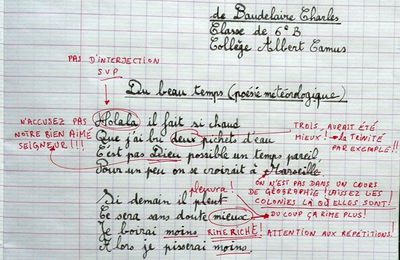 de Baudelaire Charles
Classe de 6e B
Collège Albert Camus
PAS D'INTERJECTION
SVP
Du beau temps (poésie météorologique)
Holala il fait si chaud
N'ACCUSEZ PAS
NOTRE BIEN AIMÉ
SEIGNEUR!!!
Que j'ai bu deux pichets d'eau
TROIS, AURAIT ÉTÉ
MIEUX! LA TRINITÉ
PAR EXEMPLE!!
C'est pas Dieu possible un temps pareil
Pour un peu on se croirait à Marseille
ON N'EST PAS DANS UN COURS
DE GÉOGRAPHIE! LAISSEZ LES
COLONIES LÀ OÙ ELLES SONT!
pleuvra!
Si demain il pleut
Ce sera sans doute mieux
DU COUP ÇA RIME PLUS!
Je boirai moins
RIME RICHE! ATTENTION AUX RÉPÉTITIONS!
Alors je pisserai moins.